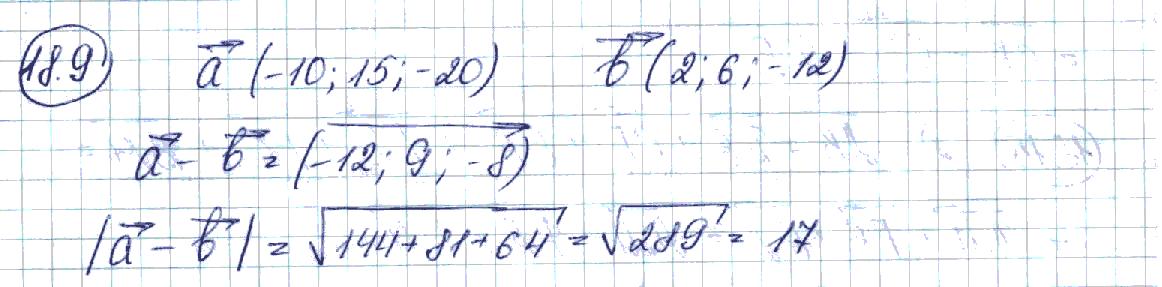 18.9) a⃗ (-10; 15; -20) b⃗ (2; 6; -12)
a⃗ - b⃗ = (-12; 9; -8)
|a⃗ - b⃗| = √144+81+64 = √289 = 17